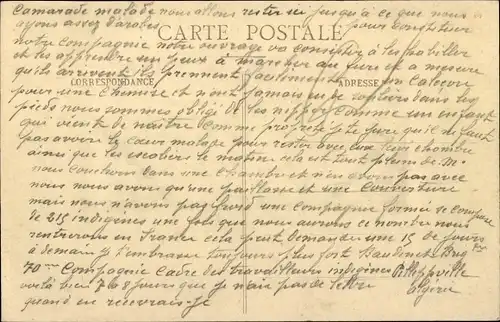 camarade malade nous allons rester ici jusqu'à ce que nous
ayons assez d'arabes pour constituer
CARTE POSTALE
notre compagnie notre ouvrage va consister à les habiller
et les apprendre un peu à marcher au fur et a mesure
qu'ils arrivent ils prennent seulement un caleçon
CORRESPONDANCE
ADRESSE
pour une chemise et n'ont jamais eu de souliers dans les
pieds nous sommes obligé de les nipper comme un enfant
qui vient de naitre comme propreté je te jure qu'il ne faut
pas avoir le coeur malade pour rester avec eux leur chambre
ainsi que les escaliers le matin cela est tout plein de M.
nous couchons dans une chambre et n'en avons pas avec
nous nous avons qu'une paillasse et une couverture
mais nous n'avons pas froid une compagnie formée se compose
de 215 indigènes une fois que nous aurons ce nombre nous
rentrerons en France cela peut demander une 15 de jours
à demain je t'embrasse toujours plus fort Baudonet Brig
70me Compagnie Cadre des travailleurs indigènes Philippeville
voilà bien 7 à 8 jours que je n'ai pas de lettre Algerie
quand en recevrais-je